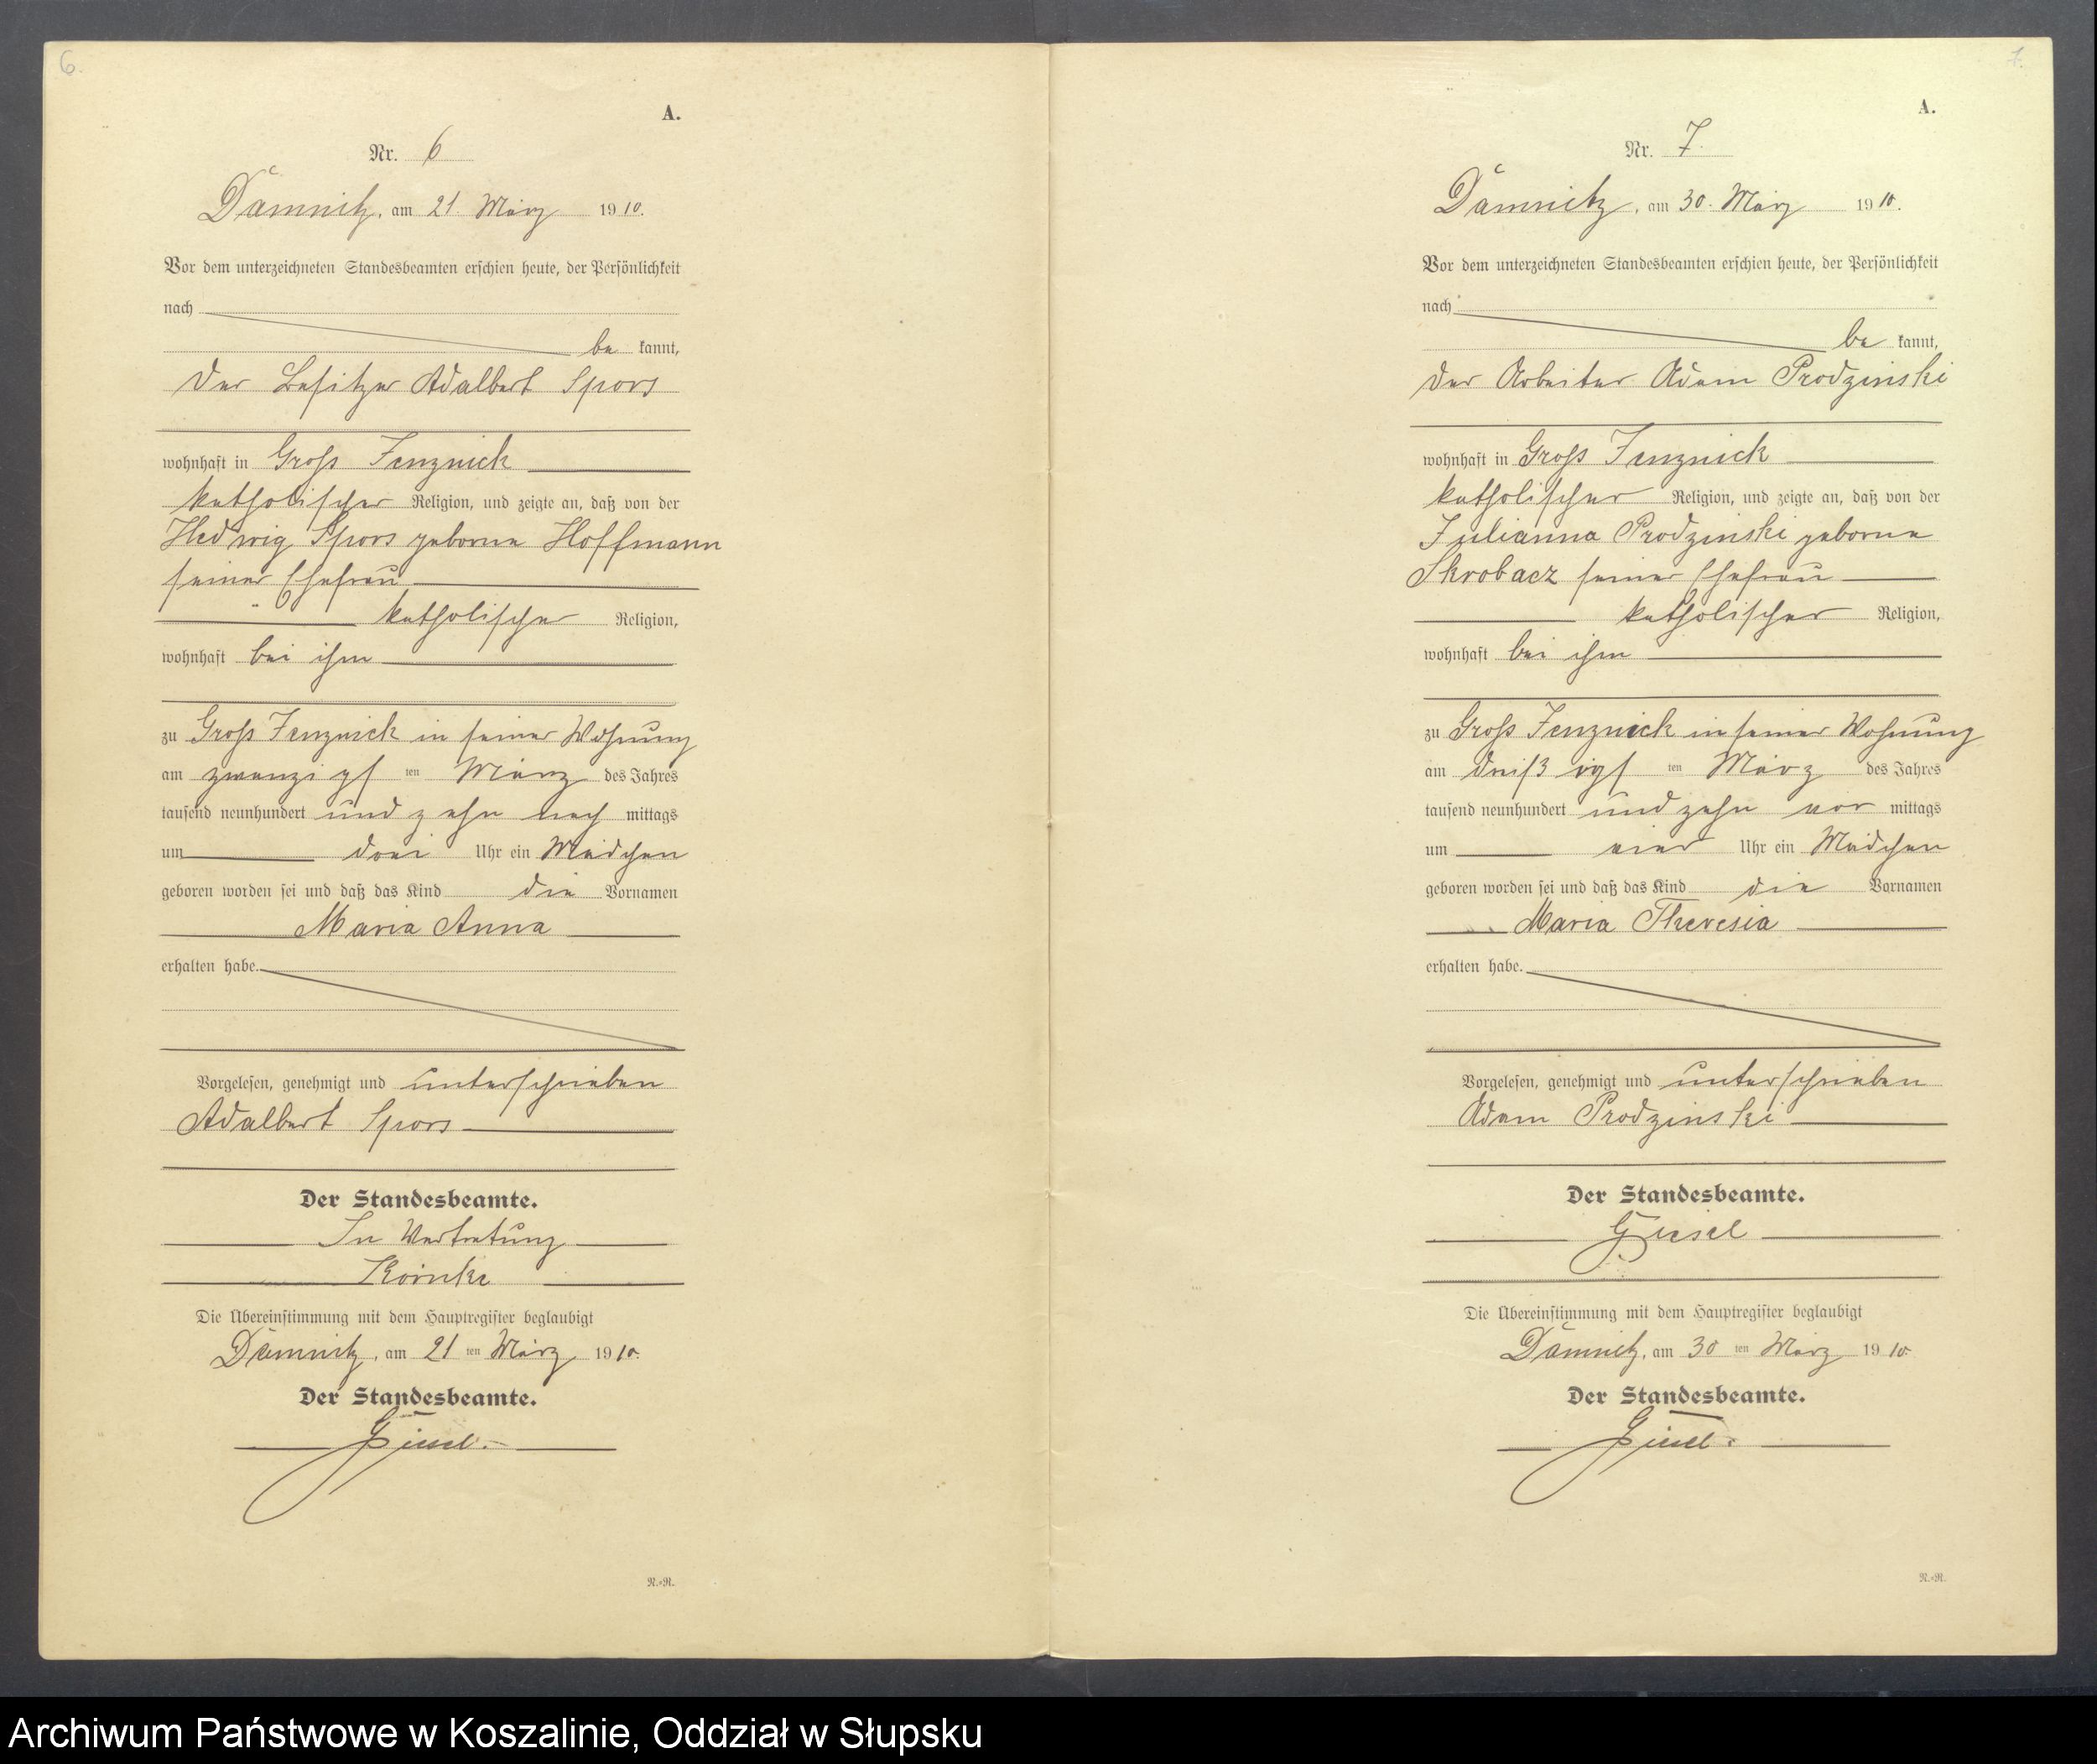 6.
A.
Nr. 6
Damnitz, am 21. März 1910.
Vor dem unterzeichneten Standesbeamten erschien heute, der Persönlichkeit
nach
be kannt,
der Besitzer Adalbert Spors
wohnhaft in Groß Jenznick
katholischer Religion, und zeigte an, daß von der
Hedwig Spors geborne Hoffmann
seiner Ehefrau
katholischer Religion,
wohnhaft bei ihm
zu Groß Jenznick in seiner Wohnung
am zwanzigst ten März des Jahres
tausend neunhundert und zehn nach mittags
um drei Uhr ein Mädchen
geboren worden sei und daß das Kind die Vornamen
Maria Anna
erhalten habe.
Vorgelesen, genehmigt und unterschrieben
Adalbert Spors
Der Standesbeamte.
In Vertretung
Die Übereinstimmung mit dem Hauptregister beglaubigt
Damnitz, am 21 ten März 1910.
Der Standesbeamte.
Giesel.
N.-R.
7.
A.
Nr. 7.
Damnitz, am 30. März 1910.
Vor dem unterzeichneten Standesbeamten erschien heute, der Persönlichkeit
nach
be kannt,
der Arbeiter Adam Prodzinski
wohnhaft in Groß Jenznick
katholischer Religion, und zeigte an, daß von der
Julianna Prodzinski geborne
Skrobacz seiner Ehefrau
katholischer Religion,
wohnhaft bei ihm
zu Groß Jenznick in seiner Wohnung
am dreißigst ten März des Jahres
tausend neunhundert und zehn vor mittags
um vier Uhr ein Mädchen
geboren worden sei und daß das Kind die Vornamen
Maria Theresia
erhalten habe.
Vorgelesen, genehmigt und unterschrieben
Adam Prodzinski
Der Standesbeamte.
Giesel
Die Übereinstimmung mit dem Hauptregister beglaubigt
Damnitz, am 30 ten März 1910.
Der Standesbeamte.
Giesel.
N.-R.
Archiwum Państwowe w Koszalinie, Oddział w Słupsku